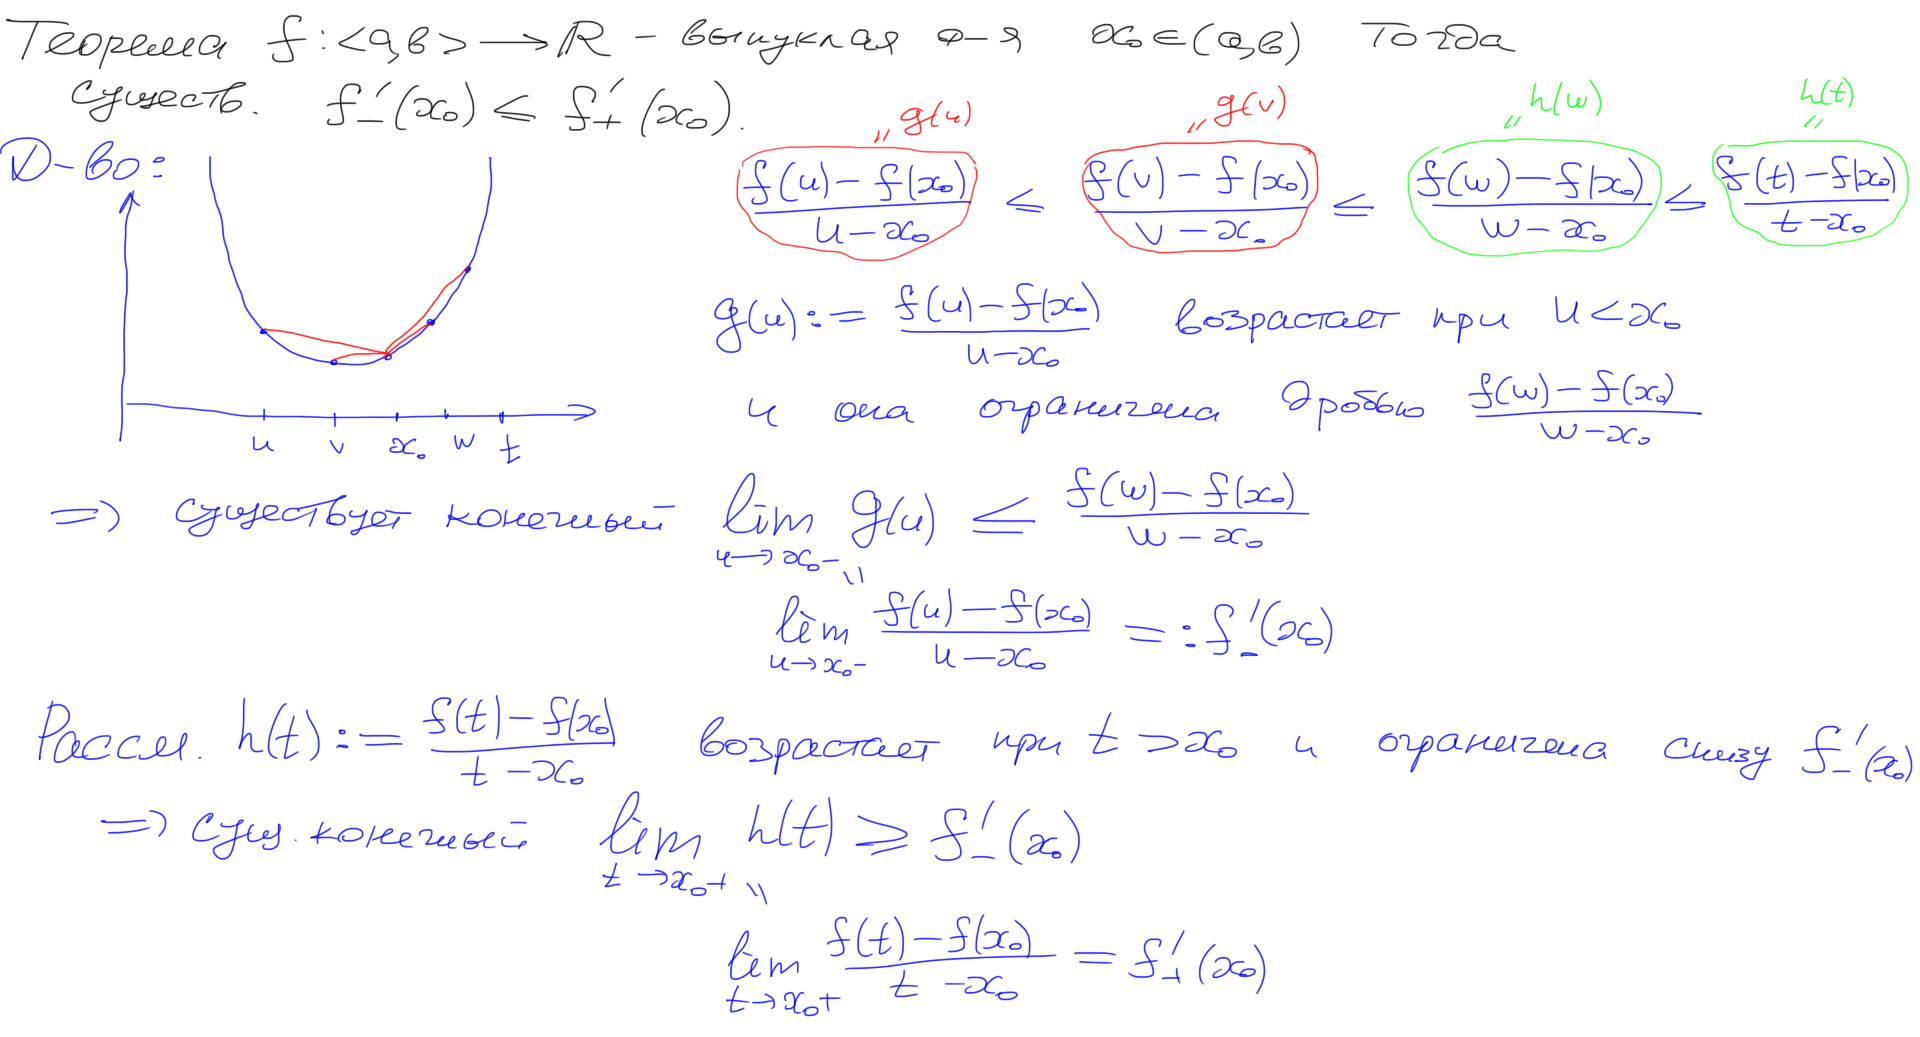 Теорема f:<a,b> → ℝ – выпуклая ф-я x₀∈(a,b) Тогда
существ. f'₋(x₀) ≤ f'₊(x₀).
Д-во:
g(u) g(v) h(w) h(t)
(f(u) – f(x₀))/(u – x₀) ≤ (f(v) – f(x₀))/(v – x₀) ≤ (f(w) – f(x₀))/(w – x₀) ≤ (f(t) – f(x₀))/(t – x₀)
g(u) := (f(u) – f(x₀))/(u – x₀) возрастает при u < x₀
и она ограничена дробью (f(w) – f(x₀))/(w – x₀)
u v x₀ w t
⇒ существует конечный lim_{u→x₀–} g(u) ≤ (f(w) – f(x₀))/(w – x₀)
"
lim_{u→x₀–} (f(u) – f(x₀))/(u – x₀) =: f'₋(x₀)
Рассм. h(t) := (f(t) – f(x₀))/(t – x₀) возрастает при t > x₀ и ограничена снизу f'₋(x₀)
⇒ сущ. конечный lim_{t→x₀+} h(t) ≥ f'₋(x₀)
"
lim_{t→x₀+} (f(t) – f(x₀))/(t – x₀) = f'₊(x₀)